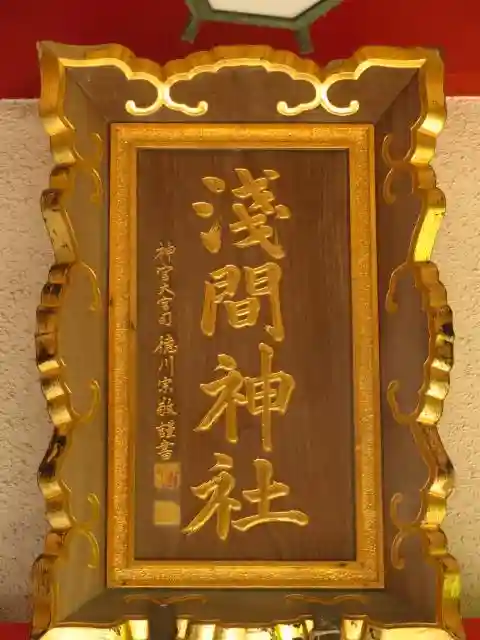 淺間神社
神宮大宮司 徳川宗敬謹書